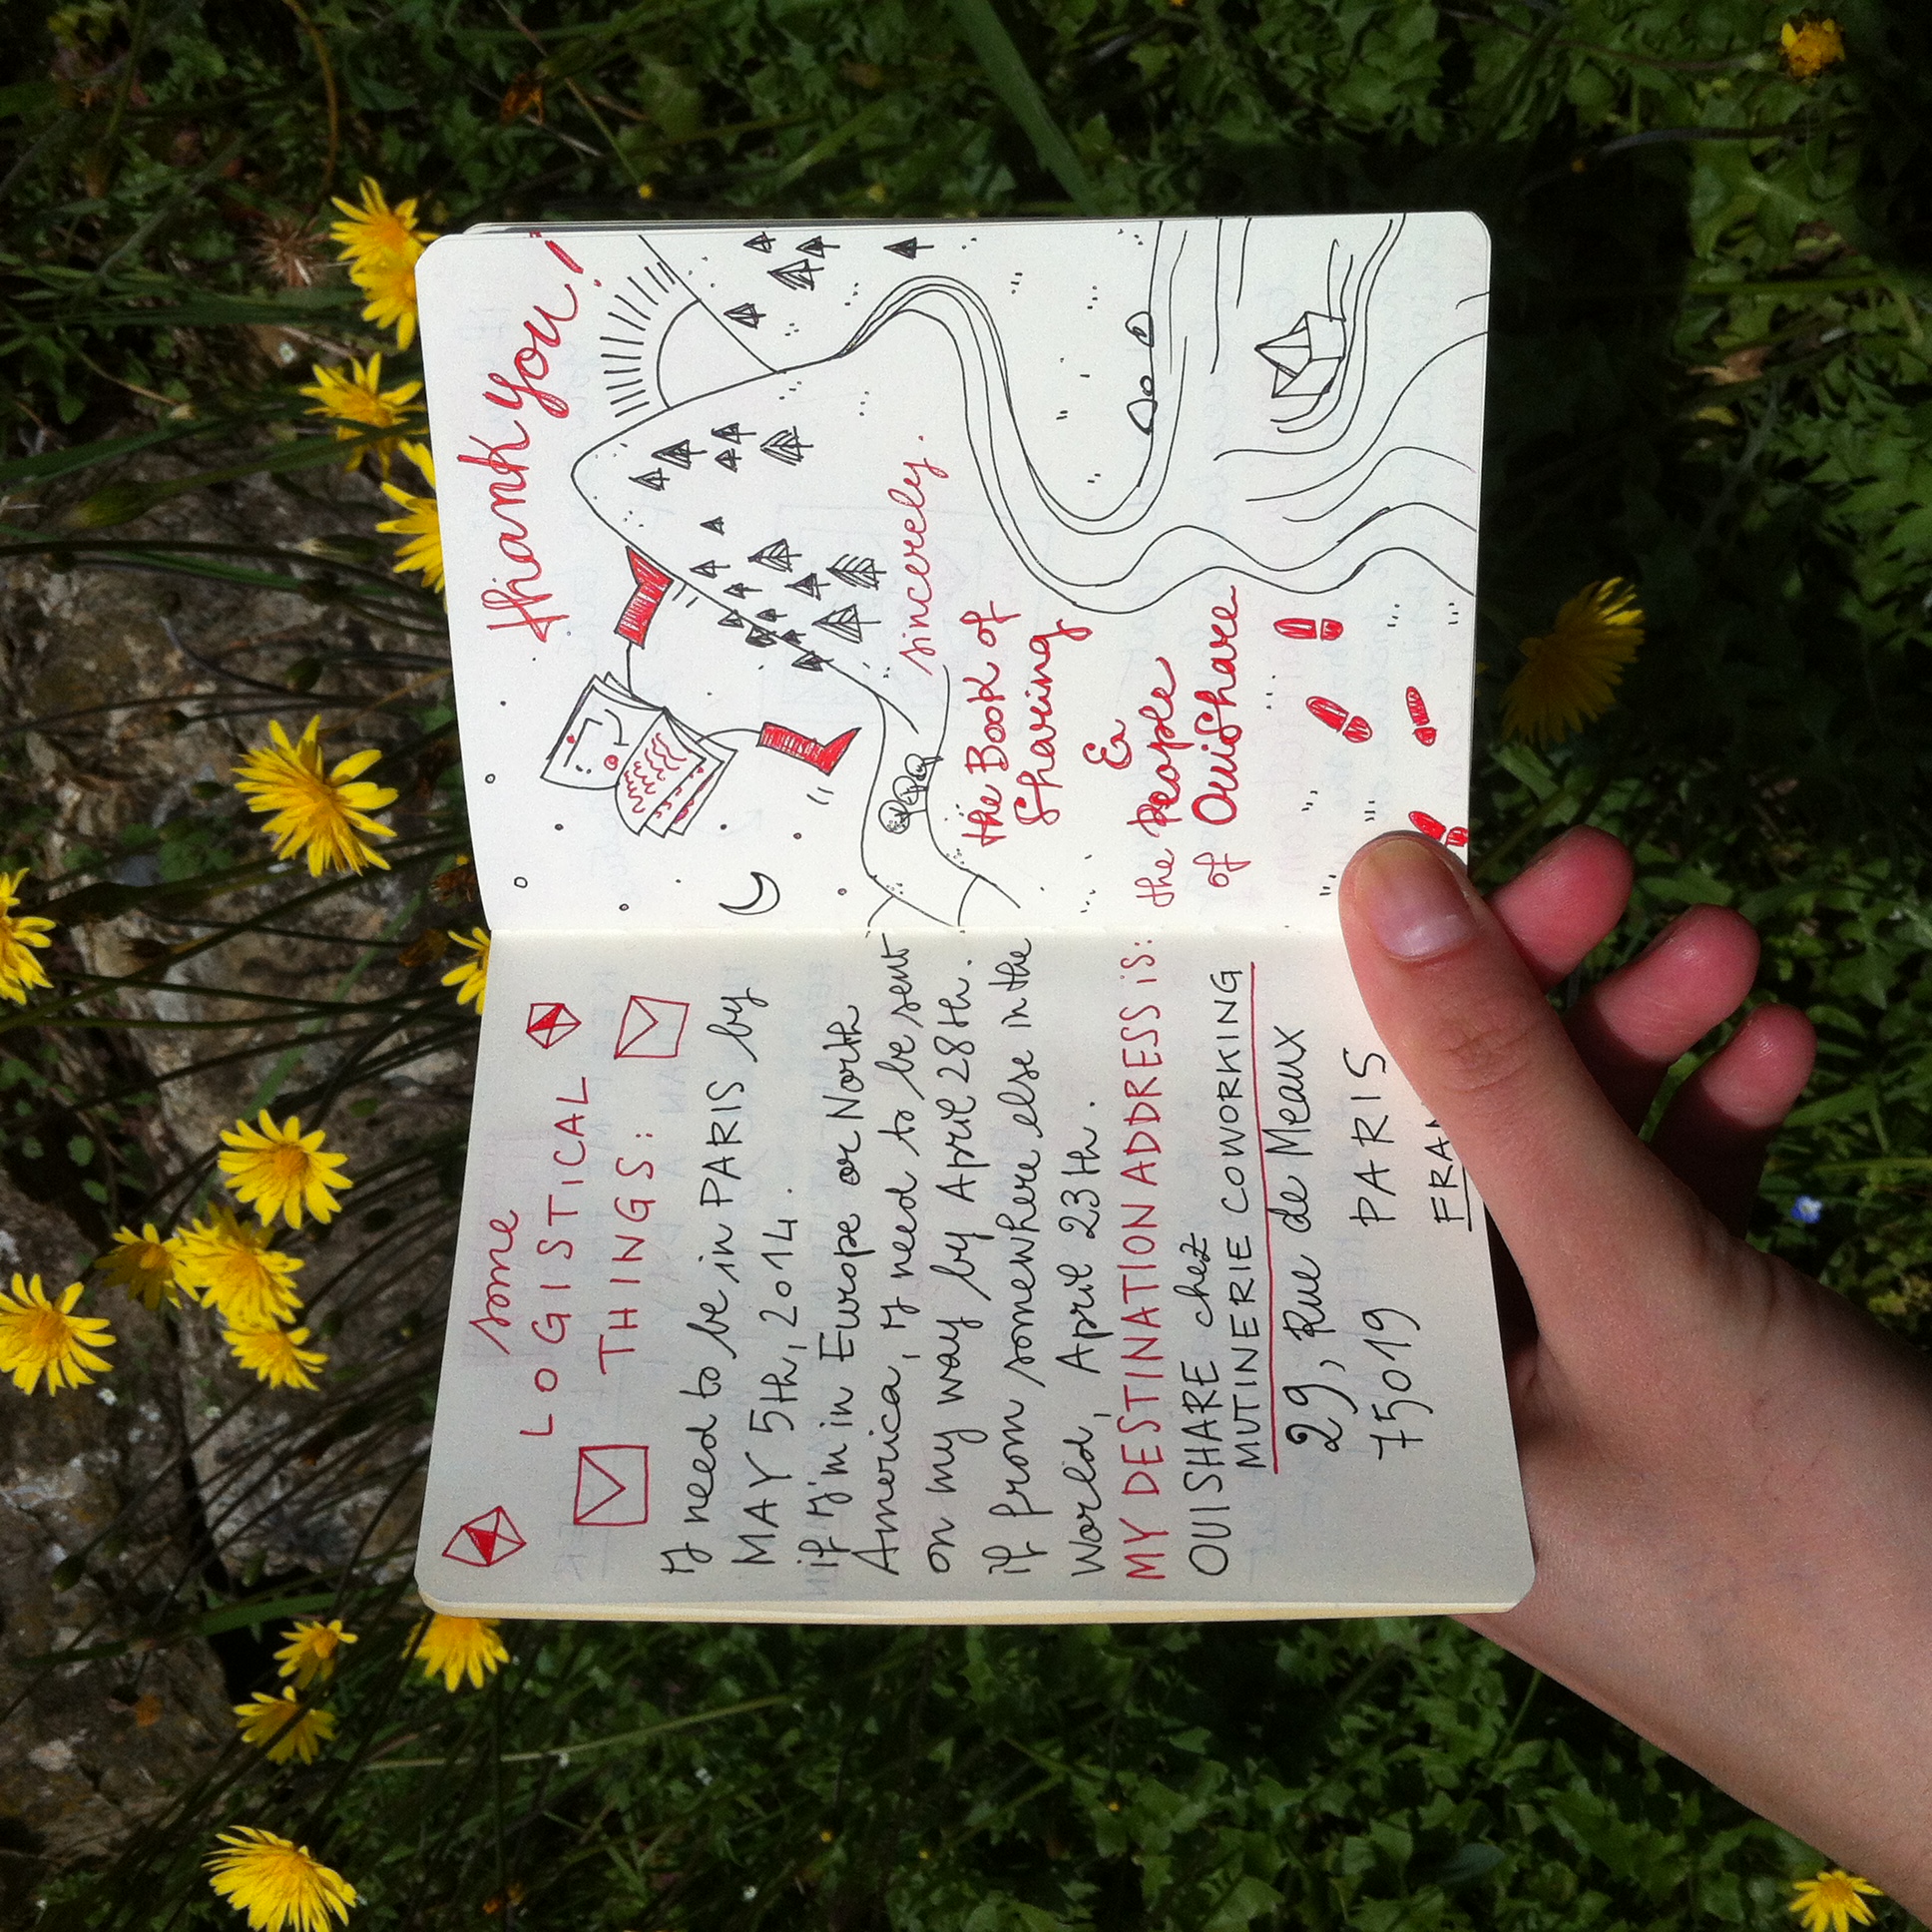 some
LOGISTICAL
THINGS:
I need to be in PARIS by
MAY 5th, 2014.
if I'm in Europe or North
America, I need to be sent
on my way by April 28th.
if from somewhere else in the
World, April 23th.
MY DESTINATION ADDRESS is:
OUISHARE chez
MUTINERIE COWORKING
29, Rue de Meaux
75019 PARIS
FRAN
thank you!
sincerely.
the Book of
Sharing
&
the people
of OuiShare